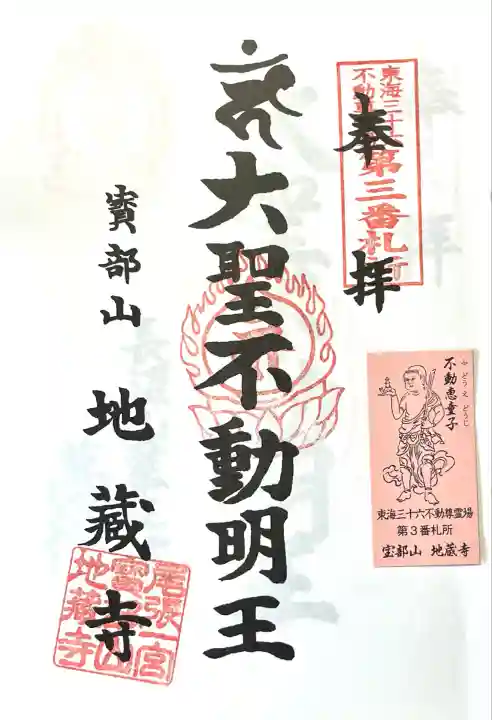 奉拝
東海三十六
不動尊
第三番札所
大聖不動明王
寳部山 地蔵寺
尾張一宮
寳部山
地蔵寺
不動恵童子
ふどうえどうじ
東海三十六不動尊霊場
第3番札所
宝部山 地蔵寺